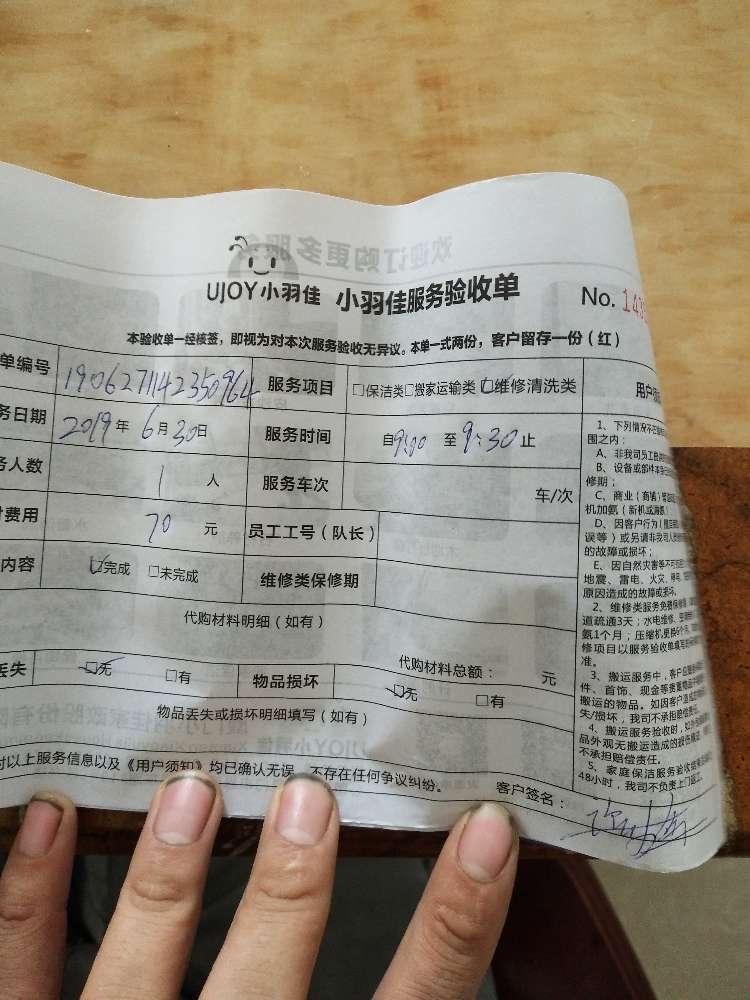 欢迎订购更多服务
UJOY小羽佳 小羽佳服务验收单 No. 143
本验收单一经核签，即视为对本次服务验收无异议。本单一式两份，客户留存一份（红）
单编号 1906271142350964 服务项目 □保洁类□搬家运输类☑维修清洗类 用户须
务日期 2019年6月30日 服务时间 自9:00至9:30止
务人数 1人 服务车次 车/次
费用 70元 员工工号（队长）
内容 ☑完成 □未完成 维修类保修期
代购材料明细（如有）
代购材料总额： 元
丢失 ☑无 □有 物品损坏 ☑无 □有
物品丢失或损坏明细填写（如有）
对以上服务信息以及《用户须知》均已确认无误，不存在任何争议纠纷。 客户签名：
1、下列情况不在
围之内：
A、非我司员工
B、设备或部件本身
修期；
C、商业（商铺）
机加氨（新机或
D、因客户行为（
误等）或另请非我司人
的故障或损坏；
E、因自然灾害等不可
地震、雷电、火灾、
原因造成的故障或损坏。
2、维修类服务免费保修
道疏通3天；水电维修、空
氨1个月；压缩机更换6个月
修项目以服务验收单填写
准。
3、搬运服务中，客户
件、首饰、现金等贵重物品
搬运的物品。如因客户
失/损坏，我司不承担赔偿责任
4、搬运服务验收时，如
品外观无搬运造成的损伤
不承担赔偿责任。
5、家庭保洁服务验收
48小时，我司不负责上门返工。